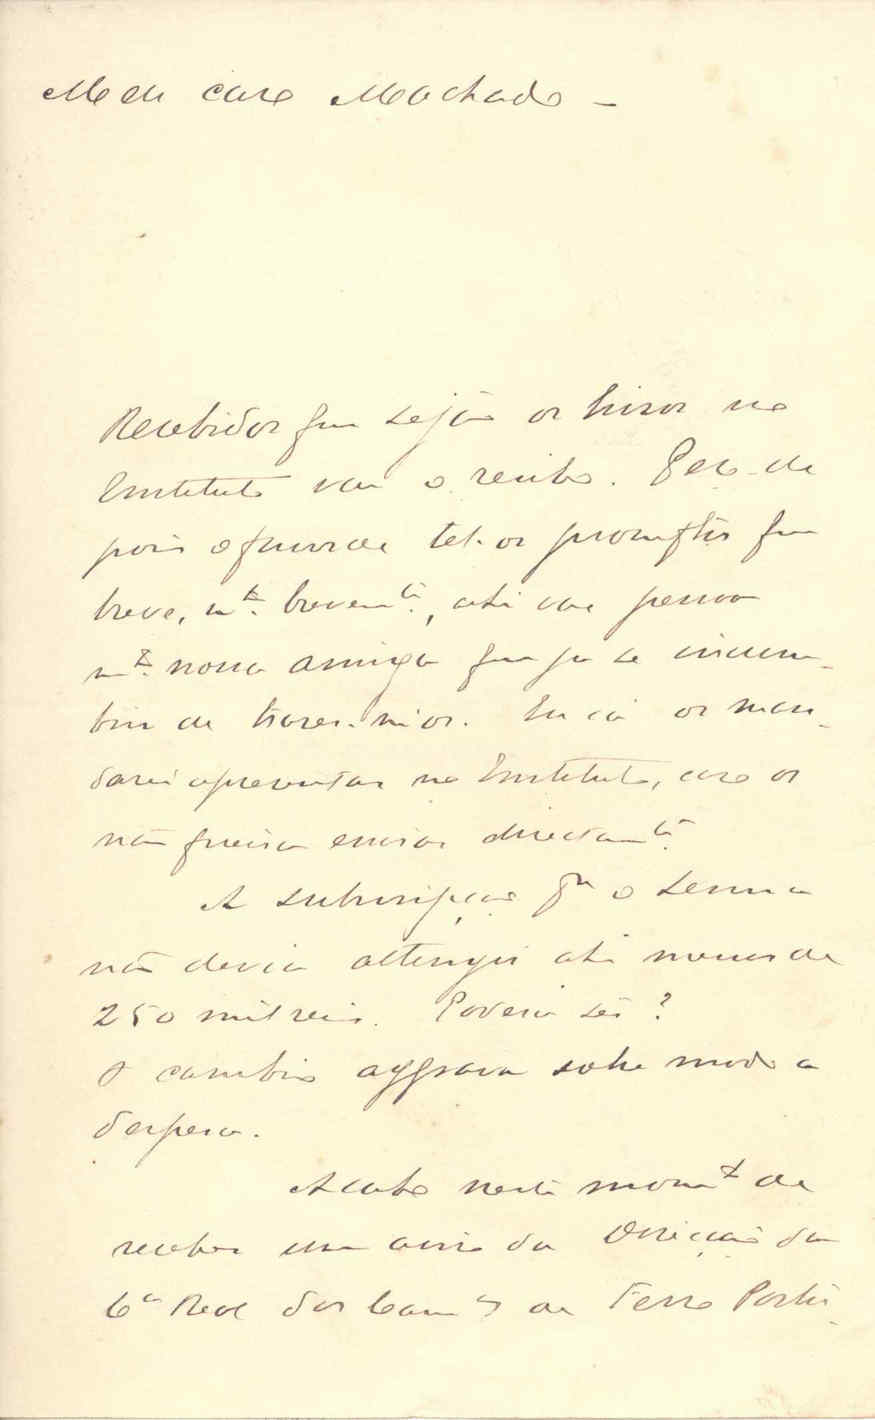 Meu caro Machado –
Recebidos que sejão os livros no
Instituto vae o recibo. Peço-de
pois o favor de tel-os promptos que
breve, mto. brevemte., até vae pessoa
mto. nossa amiga que ja se incum-
biu de trazer-m'os. Eu cá os man-
darei apresentar no Instituto, caso os
não queira enviar directamte.
A subscripção pa. o
não devia attingir até menos de
250 mil reis. Poderá ser?
O cambio aggrava sobre modo a
despesa.
Acabo neste momto. de
receber um aviso da Direcção da
Ca. Real dos Camos de Ferro Portu-